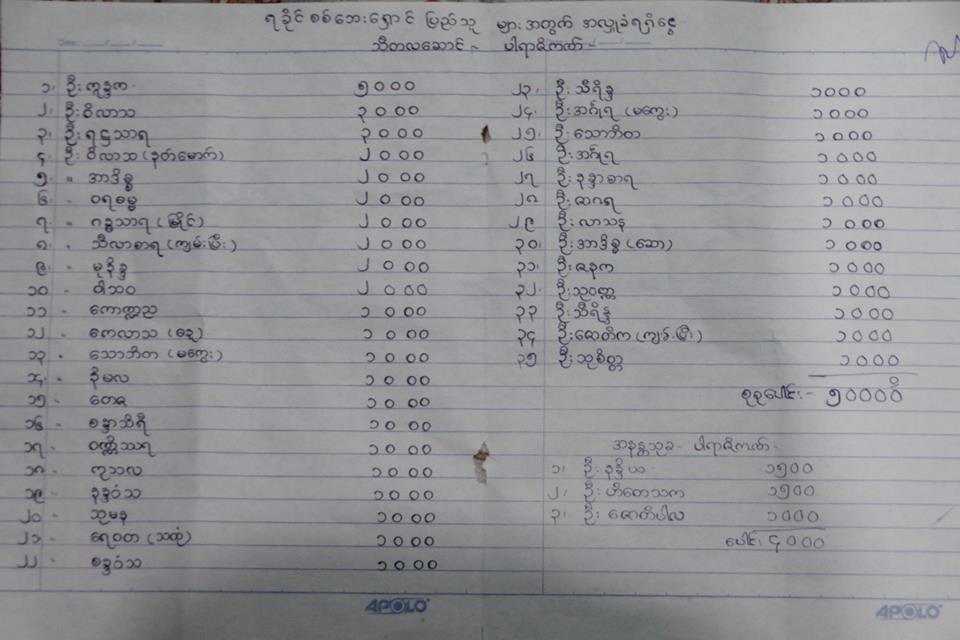 ရခိုင် စစ်ဘေးရှောင် ပြည်သူ များ အတွက် အလှူခံရရှိငွေ
သီတလဆောင် - ပါရာဇီကဏ် -
၁၊ ဦး ကုန္ဒက ၅၀၀၀
၂၊ ဦး ဝိလာသ ၃၀၀၀
၃၊ ဦး ရဋ္ဌသာရ ၃၀၀၀
၄၊ ဦး ဝိလာသ (နတ်မောက်) ၂၀၀၀
၅ " အာဒိစ္စ ၂၀၀၀
၆၊ - ဝရဓမ္မ ၂၀၀၀
၇ - ဂန္ဓသာရ (မြိုင်) ၂၀၀၀
၈ - သီလာစာရ (ကျမ်းပြီး) ၂၀၀၀
၉ - မုနိန္ဒ ၂၀၀၀
၁၀ - ဝါသဝ ၂၀၀၀
၁၁ - ကောဏ္ဍည ၁၀၀၀
၁၂ - ကေလာသ ၁၀၀၀
၁၃ - သောဘိတ (မကွေး) ၁၀၀၀
၁၄ - ဝိမလ ၁၀၀၀
၁၅ - တေဇ ၁၀၀၀
၁၆ - စန္ဒာသိရီ ၁၀၀၀
၁၇ - ဝဏ္ဏိဿရ ၁၀၀၀
၁၈ - ကုသလ ၁၀၀၀
၁၉ - နန္ဒဝံသ ၁၀၀၀
၂၀ - သုမန ၁၀၀၀
၂၁ - ရေဝတ (သထုံ) ၁၀၀၀
၂၂ - စန္ဒဝံသ ၁၀၀၀
၂၃၊ ဦး သီရိန္ဒ ၁၀၀၀
၂၄၊ ဦး အင်္ဂုရ (မကွေး) ၁၀၀၀
၂၅၊ ဦး သောဘိတ ၁၀၀၀
၂၆ ဦး အင်္ဂုရ ၁၀၀၀
၂၇ ဦး နန္ဒာစာရ ၁၀၀၀
၂၈ ဦး ဆာဂရ ၁၀၀၀
၂၉ ဦး လာသန ၁၀၀၀
၃၀၊ ဦး အာဒိစ္စ (ဆော) ၁၀၀၀
၃၁၊ ဦး ဇနက ၁၀၀၀
၃၂၊ ဦး သုဝဏ္ဏ ၁၀၀၀
၃၃ ဦး သီရိန္ဒ ၁၀၀၀
၃၄ ဦး ဇောတိက (ကျမ်းပြီး) ၁၀၀၀
၃၅ ဦး သုစိတ္တ ၁၀၀၀
စုစုပေါင်း - ၅၀၀၀၀ိ
အနန္တသုခ - ပါရာဇီကဏ် -
၁၊ ဦး နန္ဒိယ ၁၅၀၀
၂၊ ဦး ဟိတေသက ၁၅၀၀
၃၊ ဦး ဇောတိပါလ ၁၀၀၀
ပေါင်း ၄၀၀၀
APOLO
APOLO